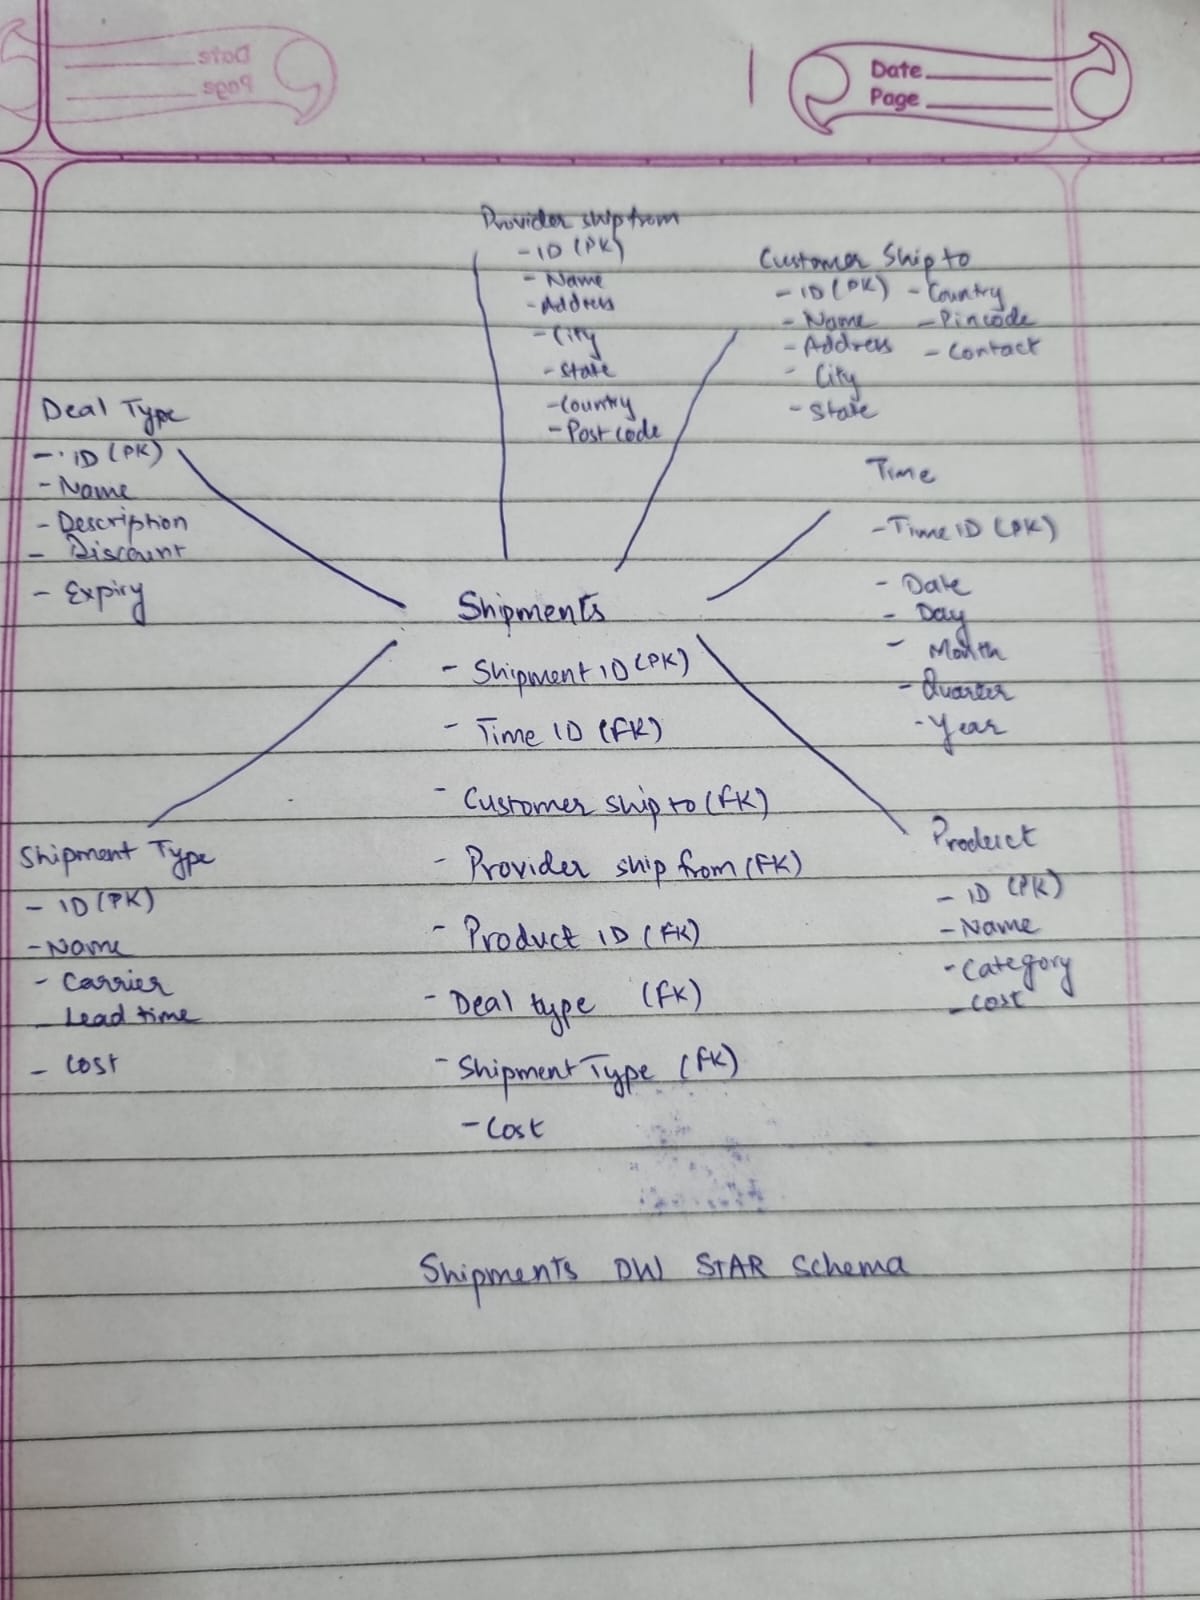 Date
Page
Provider ship from
- ID (PK)
- Name
- Address
- City
- State
- Country
- Post code
Customer Ship to
- ID (PK) - Country
- Name - Pincode
- Address - Contact
- City
- State
Deal Type
- ID (PK)
- Name
- Description
- Discount
- Expiry
Time
- Time ID (PK)
- Date
- Day
- Month
- Quarter
- Year
Shipments
- Shipment ID (PK)
- Time ID (FK)
- Customer ship to (FK)
- Provider ship from (FK)
- Product ID (FK)
- Deal type (FK)
- Shipment Type (FK)
- Cost
Shipment Type
- ID (PK)
- Name
- Carrier
- Lead time
- Cost
Product
- ID (PK)
- Name
- Category
- Cost
Shipments DW STAR Schema